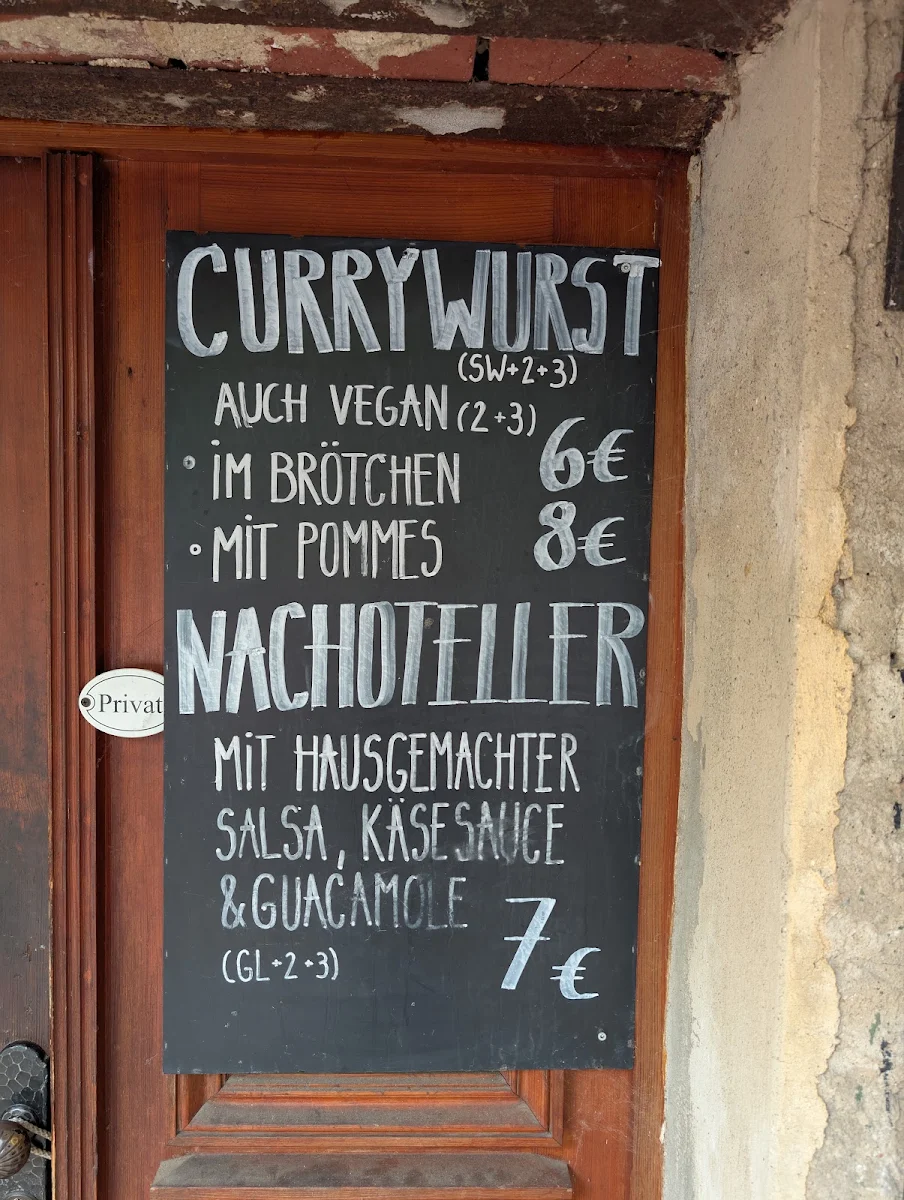 CURRYWURST
(SW+2+3)
AUCH VEGAN (2+3)
• IM BRÖTCHEN 6€
• MIT POMMES 8€
NACHOTELLER
Privat
MIT HAUSGEMACHTER
SALSA, KÄSESAUCE
& GUACAMOLE
(GL+2+3)
7€